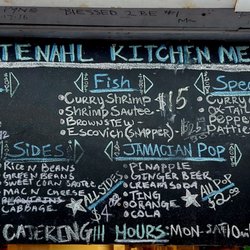 BLESSED 2 BE
TENAHL KITCHEN ME
Fish
Spec
Curry Shrimp
Shrimp Sautee
Brown Stew
Escovich (Snapper)
$15
Curry
Oxt
Pepper
Patti
Sides
Rice N Beans
Green Beans
Sweet Corn Sautee
Mac N Cheese
Plantains
Cabbage
All Sides
$4
Jamacian Pop
Pinapple
Ginger Beer
Cream Soda
Ting
Orange
Cola
All Pop
$2.00
Catering!!! Hours: Mon-Sat